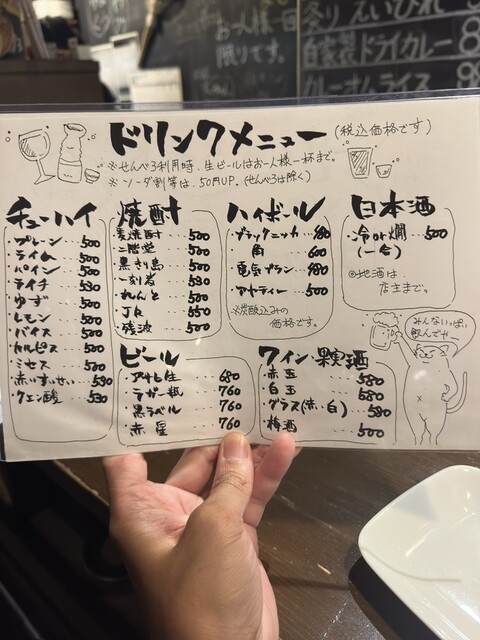 お一人様一回
限りです。
炙りえいひれ
自家製ドライカレー
クリームオムライス
ドリンクメニュー (税込価格です)
※せんべろ利用時、生ビールはお一人様一杯まで。
※ソーダ割等は、50円UP。(せんべろは除く)
チューハイ
・プレーン 500
・ライム 500
・パイン 500
・ライチ 530
・ゆず 500
・レモン 500
・バイス 500
・カルピス 500
・ミセス 500
・赤いすいせい 590
・クエン酸 530
焼酎
麦焼酎 500
二階堂 500
黒きり島 500
一刻者 530
れんと 500
JR 550
残波 500
ハイボール
・ブラックニッカ 480
角 600
・電気ブラン 480
・アセティー 500
※炭酸込みの
価格です。
日本酒
・冷or燗 500
(一合)
◎地酒は
店主まで。
ビール
・アサヒ生 680
・ラガー瓶 760
・黒ラベル 760
・赤星 760
ワイン 果実酒
・赤玉 580
・白玉 580
・グラス(赤・白) 580
・梅酒 500
みんないっぱい
飲んでやー